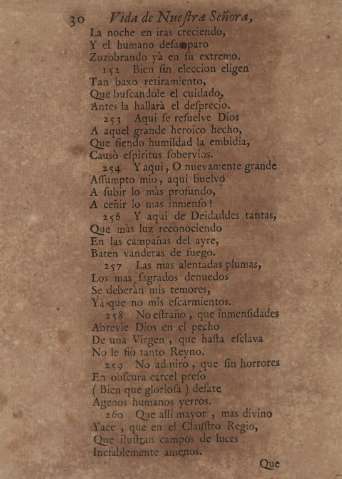 30 Vida de Nuestra Señora,
La noche en iras creciendo,
Y el humano desamparo
Zozobrando yà en su extremo.
252 Bien sin eleccion eligen
Tan baxo retiramiento,
Que buscandole el cuidado,
Antes la hallarà el desprecio.
253 Aqui se resuelve Dios
A aquel grande heroico hecho,
Que siendo humildad la embidia,
Causò espiritus sobervios.
254 Y aqui, O nuevamente grande
Assumpto mio, aqui buelvo
A subir lo màs profundo,
A ceñir lo mas inmenso!
256 Y aqui de Deidaddes tantas,
Que màs luz reconociendo
En las campañas del ayre,
Baten vanderas de fuego.
257 Las mas alentadas plumas,
Los mas sagrados denuedos
Se deberàn mis temores,
Ya que no mis escarmientos.
258 No estraño, que inmensidades
Abrevie Dios en el pecho
De una Virgen, que hasta esclava
No le fiò tanto Reyno.
259 No admiro, que sin horrores
En obscura carcel preso
( Bien que gloriosa ) desate
Agenos humanos yerros.
260 Que alli mayor, mas divino
Yace, que en el Claustro Regio,
Que ilustran campos de luces
Inefablemente amenos.
Que